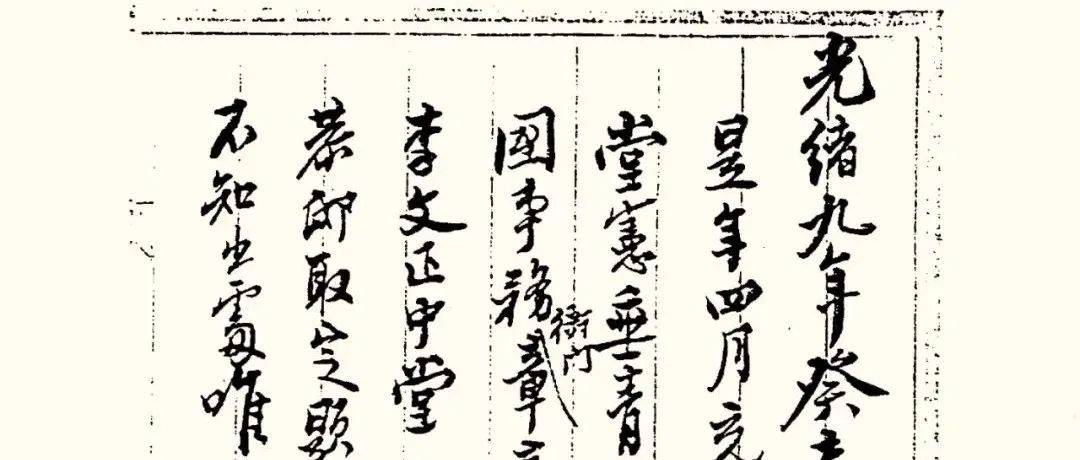 光緒九年癸
昰年四月充
堂憲垂青
國事務衙門章
李文正中堂
恭邸取定
不知出處唯